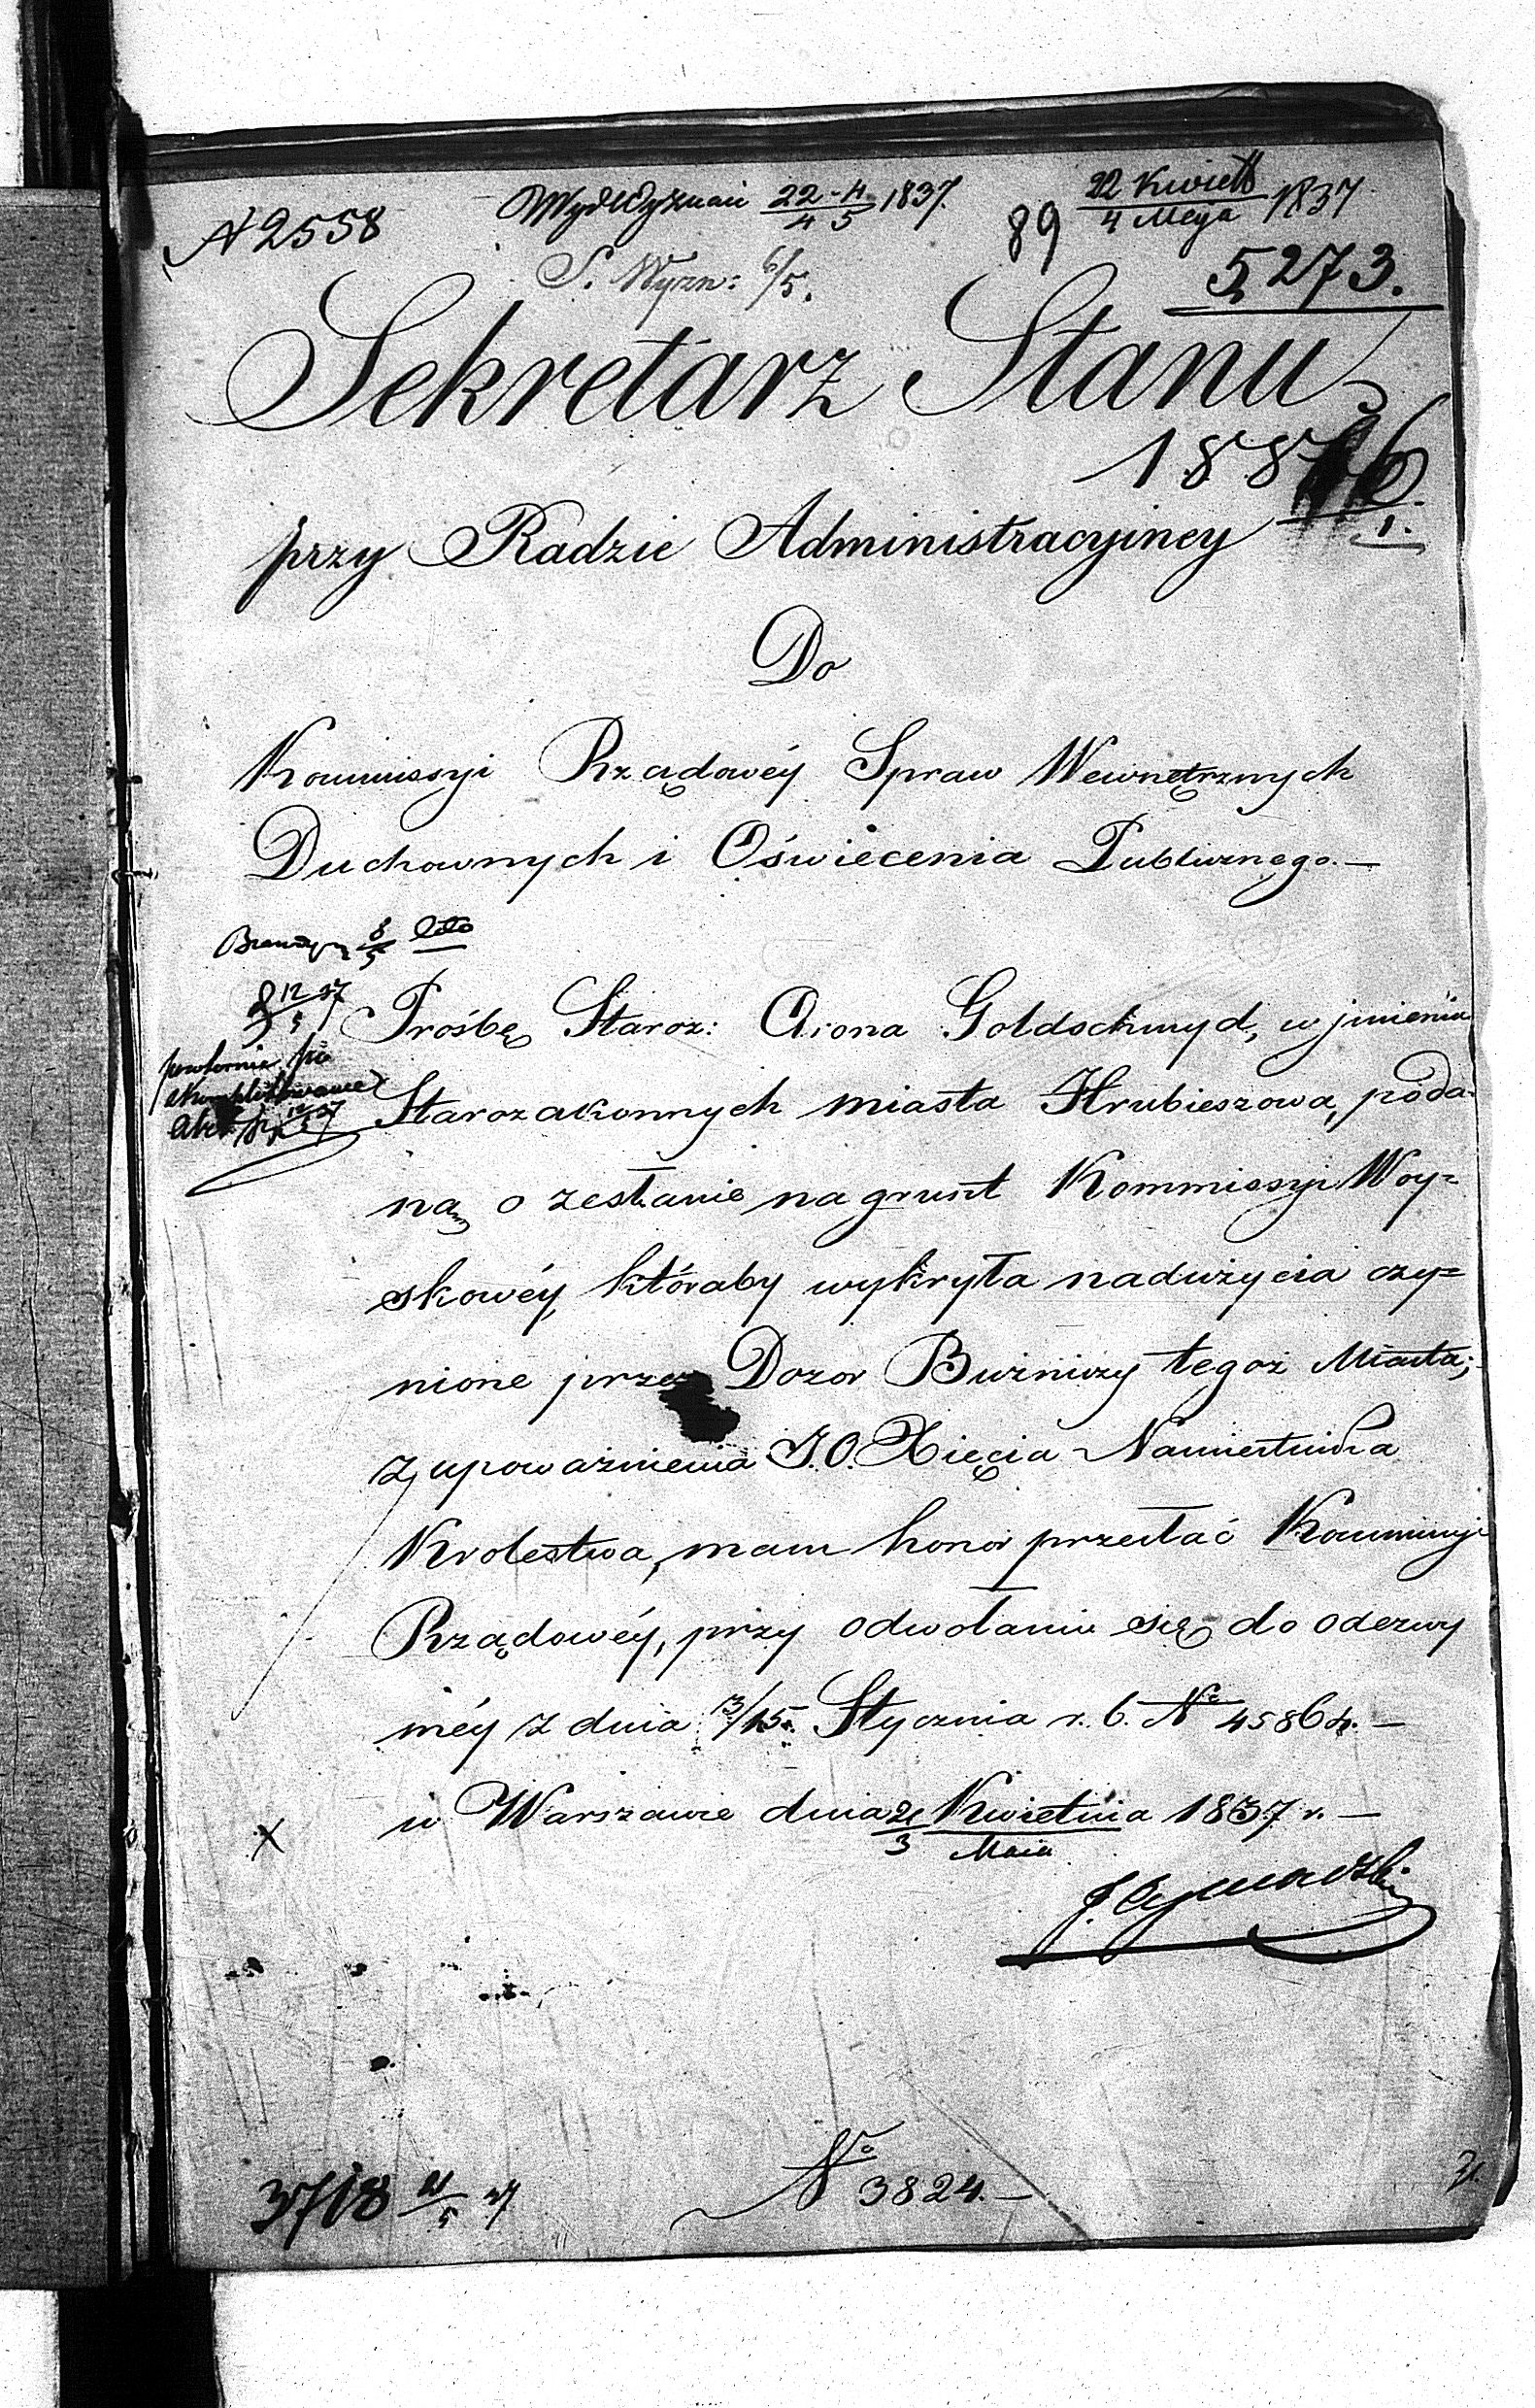 N 2558
Wyd Wyznań 22-4/4 5 1837.
89
22 Kwiet/4 Maja 1837
5273.
S. Wyzn: 6/5.
Sekretarz Stanu
188
przy Radzie Administracyiney
1.
Do
Kommissyi Rządowéy Spraw Wewnętrznych
Duchownych i Oświecenia Publicznego. —
8/5
12/5 37
Prośbę Staroz: Arona Goldschmyd, w jmieniu
powtórnie
Starozakonnych miasta Hrubieszowa, poda-
12/5 37
ną o zesłanie na grunt Kommissyi Woy=
skowéy, któraby wykryła nadużycia czy=
nione przez Dozor Bużniczy tegoż Miasta;
z upoważnienia J.O. Xięcia Namiestnika
Krolestwa, mam honor przesłać Kommissyi
Rządowéy, przy odwołaniu się do odezwy
méy z dnia 3/15. Stycznia r. b. No 45864. —
w Warszawie dnia 21/3 Kwietnia/Maia 1837 r. —
x
No 3824. —
3718 11/5 37